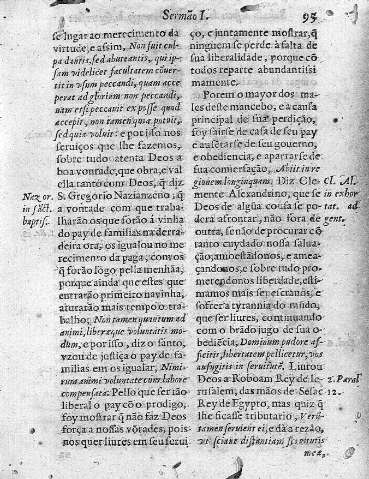 Sermão I. 95
se lugar ao merecimento da
virtude, e assim, Non fuit cul-
pa dantis, sed abutentis, qui ip-
sam videlicet facultatem cõuer-
tit in vsum peccandi, quam acce
perat ad gloriam non peccandi,
nam etsi peccauit ex posse quod
accepit, non tamen quia potuit,
sed quia voluit: e por isso nos
seruiços que lhe fazemos,
sobre tudo atenta Deos a
boa vontade, que obra, e val
ella tanto com Deos, q̃ diz
S. Gregorio Nazianzeno, q̃
a vontade com que traba-
lharão os que forão á vinha
do pay de familias na derra-
deira ora, os igualou no me-
recimento da paga, com os
q̃ forão logo pella menhãa,
porque ainda que estes que
entrarão primeiro na vinha,
aturarão mais tempo o tra-
balho; Non tamen quantum ad
animi, liberæque voluntatis mo-
dum, e por isso, diz o santo,
vzou de justiça o pay de fa-
milias em os igualar, Nimi-
rum animi voluntate cum labore
compensata: Pello que ser tão
liberal o pay cõ o prodigo,
foy mostrar q̃ não faz Deos
força a nossas võtades, pois
nos quer liures em seu serui
Naz. or.
in sãct.
baptis.
ço, e juntamente mostrar, q̃
ninguem se perde á falta de
sua liberalidade, porque cõ
todos reparte abundantissi
mamente.
Porem o mayor dos ma-
les deste mancebo, e a causa
principal de sua perdição,
foy sairse de casa de seu pay
e ausētarse de seu gouerno,
e obediencia, e apartarse de
sua conuersação, Abijt in re
gionem longinquam; Diz Cle-
mente Alexandrino, que se
Deos de algũa cousa se po-
derá afrontar, não fora de
outra, senão de procurar cõ
tanto cuydado nossa salua-
ção, amoestãdonos, e amea-
çandonos, e sobre tudo pro-
metendonos liberdade, esti-
mamos mais ser escrauos, e
soffrer a tyrannia do mũdo,
que ser liures, continuando
com o brãdo jugo de sua o-
bediẽcia, Dominum pudore af-
ficitis, libertatem pollicetur, vos
aufugitis in seruitutẽ. Liurou
Deos a Roboam Rey de Ie-
rusalem das mãos de Sesac
Rey de Egypto, mas quiz q̃
lhe ficasse tributario, Verũ-
tamen seruient ei, e dá a rezão,
vt sciant distantiam seruitutis
meæ,
Cl. Al.
in exhor
tat. ad
gent.
2. Paral
12.